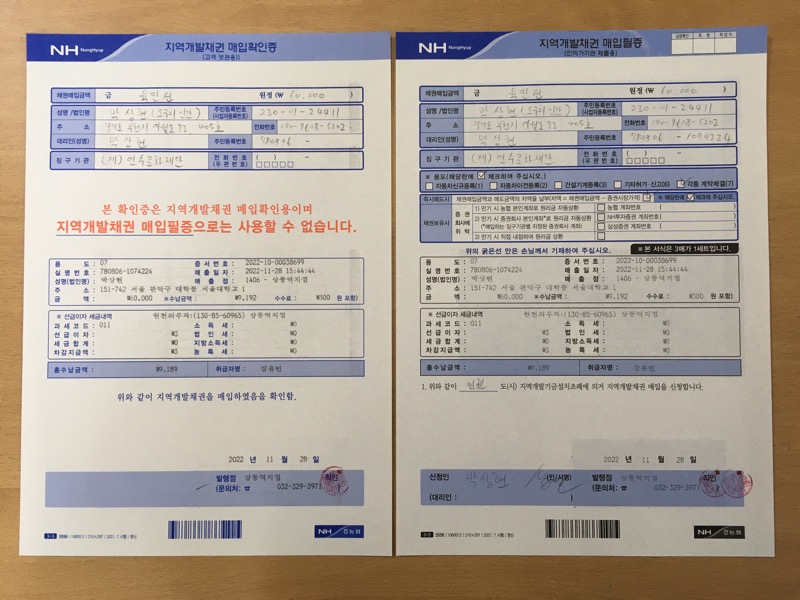 NH NongHyup
지역개발채권 매입확인증
(고객 보관용)
채권매입금액 금 육만원 원정 (₩ 60,000 )
성명 /법인명 박상현 주민등록번호 (사업자등록번호) 230-01-24411
주 소 405호 전화번호 010-9608-5202
대리인(성명) 박상현 주민등록번호 780806
징구기관 (재) 연수문화재단 전화번호 (우편번호) ( )
본 확인증은 지역개발채권 매입확인용이며
지역개발채권 매입필증으로는 사용할 수 없습니다.
용 도 : 07 증서번호 : 2022-10-00038699
실명번호 : 780806-1074224 매출일자 : 2022-11-28 15:44:44
성명(법인명) : 박상현 매 출 점 : 1406 - 상동역지점
주 소 : 151-742 서울 관악구 대학동 서울대학교 1
금 액 : ₩60,000 ※수납금액 : ₩9,192 수수료 : ₩300 원 포함)
※ 선급이자 세금내역 원천의무자:(130-85-60965) 상동역지점
과세코드 : 011 소 득 세 : ₩0
선급이자 : ₩3 법 인 세 : ₩0
세금합계 : ₩0 지방소득세 : ₩0
차감지급액 : ₩3 농 특 세 : ₩0
총수납금액 : ₩9,189 취급자명 : 강유빈
위와 같이 지역개발채권을 매입하였음을 확인함.
2022 년 11 월 28 일
발행점 상동역지점 직인
(문의처: ☎ 032-329-3971
3-1 5556
NH 농협
NH NongHyup
지역개발채권 매입필증
(인허가기관 제출용)
실명확인 계 원 책임자
채권매입금액 금 육만원 원정 (₩ 60,000 )
성명 /법인명 박상현 주민등록번호 (사업자등록번호) 230-01-24411
주 소 405호 전화번호 010-9608-5202
대리인(성명) 박상현 주민등록번호 780806 - 1074224
징구기관 (재) 연수문화재단 전화번호 (우편번호) ( )
※ 용도(해당란에 ☑ 체크하여 주십시오.)
자동차신규등록(1) 자동차이전등록(2) 건설기계등록(3) 기타허가·신고(6) 각종 계약체결(7)
즉시매도시 채권매입금액과 매도금액의 차액을 납부(차액 = 채권매입금액 - 증권시장가격) ※ 해당란에 ☑ 체크하여 주십시오.
채권보유시 증권회사에 위탁
1) 만기시 농협 본인계좌로 원리금 자동상환 농협 계좌번호( )
2) 만기시 증권회사 본인계좌*로 원리금 자동상환 NH투자증권 계좌번호( )
(*매입하는 징구기관별 지정된 증권회사 계좌) 삼성증권 계좌번호( )
3) 만기시 직접 내점하여 원리금 상환
위의 굵은선 안은 손님께서 기재하여 주십시오. ※ 본 서식은 3매가 1세트입니다.
용 도 : 07 증서번호 : 2022-10-00038699
실명번호 : 780806-1074224 매출일자 : 2022-11-28 15:44:44
성명(법인명) : 박상현 매 출 점 : 1406 - 상동역지점
주 소 : 151-742 서울 관악구 대학동 서울대학교 1
금 액 : ₩60,000 ※수납금액 : ₩9,192 수수료 : ₩300 원 포함)
※ 선급이자 세금내역 원천의무자:(130-85-60965) 상동역지점
과세코드 : 011 소 득 세 : ₩0
선급이자 : ₩3 법 인 세 : ₩0
세금합계 : ₩0 지방소득세 : ₩0
차감지급액 : ₩3 농 특 세 : ₩0
총수납금액 : ₩9,189 취급자명 : 강유빈
1. 위와 같이 도(시) 지역개발기금설치조례에 의거 지역개발채권 매입을 신청합니다.
2022 년 11 월 28 일
신청인 박상현 (인/서명) 발행점 상동역지점 직인
(대리인 : ) (문의처: ☎ 032-329-3971
3-2 5556
NH 농협